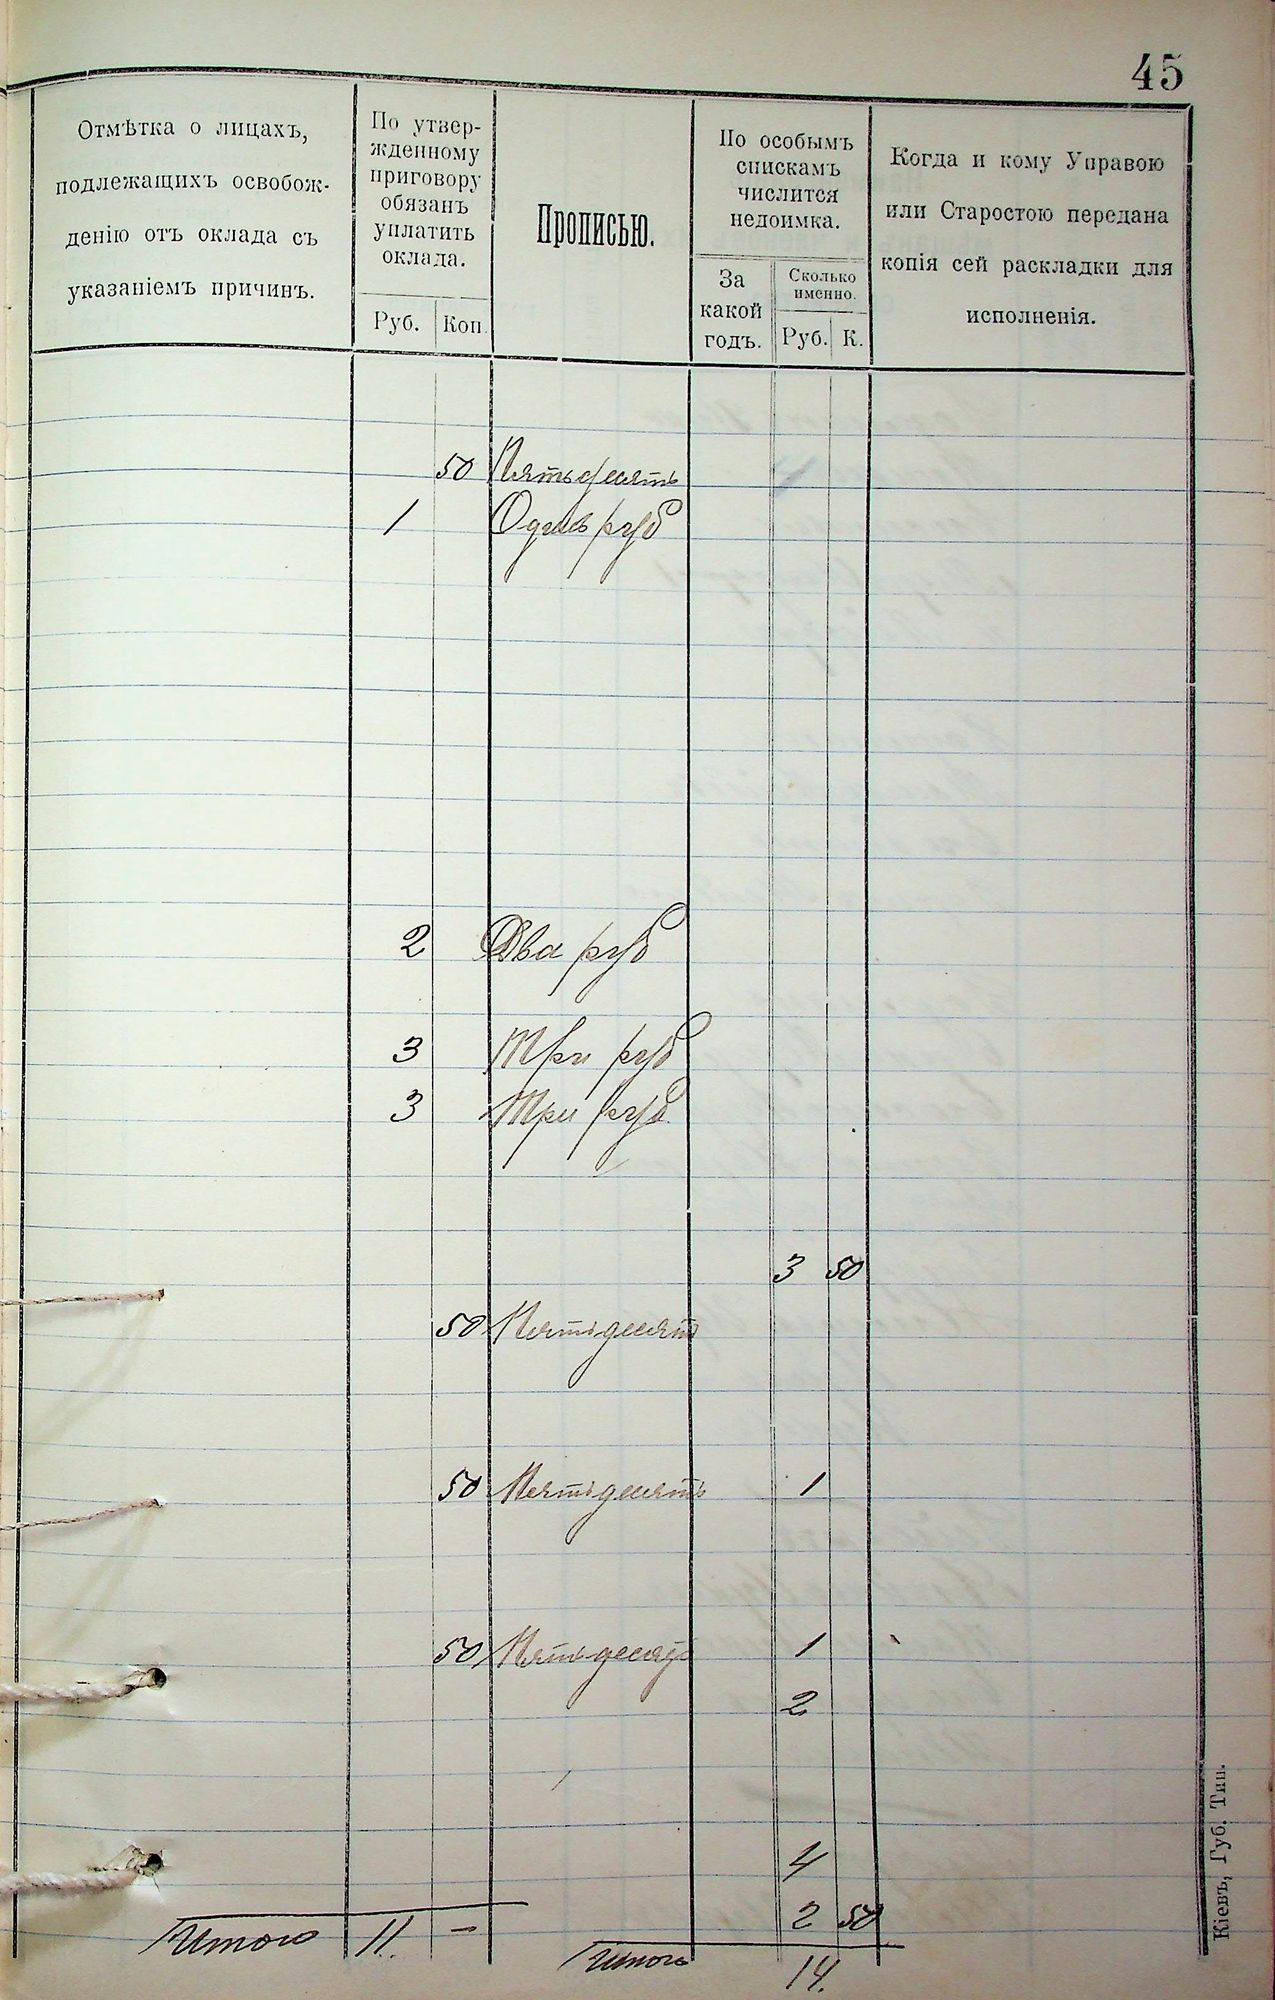 45
Отмѣтка о лицахъ,
подлежащихъ освобож-
денію отъ оклада съ
указаніемъ причинъ.
По утвер-
жденному
приговору
обязанъ
уплатить
оклада.
Руб. Коп.
Прописью.
По особымъ
спискамъ
числится
недоимка.
За
какой
годъ.
Сколько
именно.
Руб. К.
Когда и кому Управою
или Старостою передана
копія сей раскладки для
исполненія.
50 Пятьдесятъ
1 Одинъ руб
2 Два руб
3 Три руб
3 Три руб.
3 50
50 Пятьдесят
50 Пятьдесятъ 1
50 Пятьдесят 1
2
4
2 50
Итого 11. —
Итого 14.
Кіевъ, Губ. Тип.